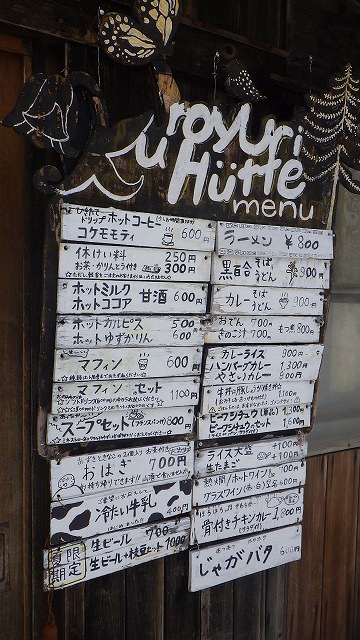 uroyuri
Hütte
menu
ドリップホットコーヒー
コケモモティ 600円
休けい料 250円
お茶・かりんとう付き 300円
ホットミルク
ホットココア 甘酒 600円
ホットカルピス 500
ホットゆずかりん 600
マフィン 600円
マフィンセット 1100円
スープセット(フランスパン付) 800円
おはぎ 700円
お持ち帰りできます!!
冷たい牛乳 400円
はじめました!!
夏季限定
生ビール 700円
生ビール+枝豆セット 1000円
ラーメン ¥800
黒百合 そば うどん 900円
カレー そば うどん 900円
おでん 700円
きのこ汁 700円 もつ煮 800円
カレーライス 900円
ハンバーグカレー 1,300円
やさいカレー
ビーフシチュー(単品) 1,300円
ビーフシチューセット 1,600
ライス大盛 +100円
生たまご +100円
熱々!ホットワイン
グラスワイン(赤・白)
骨付きチキンカレー 1,800円
じゃがバタ 600円